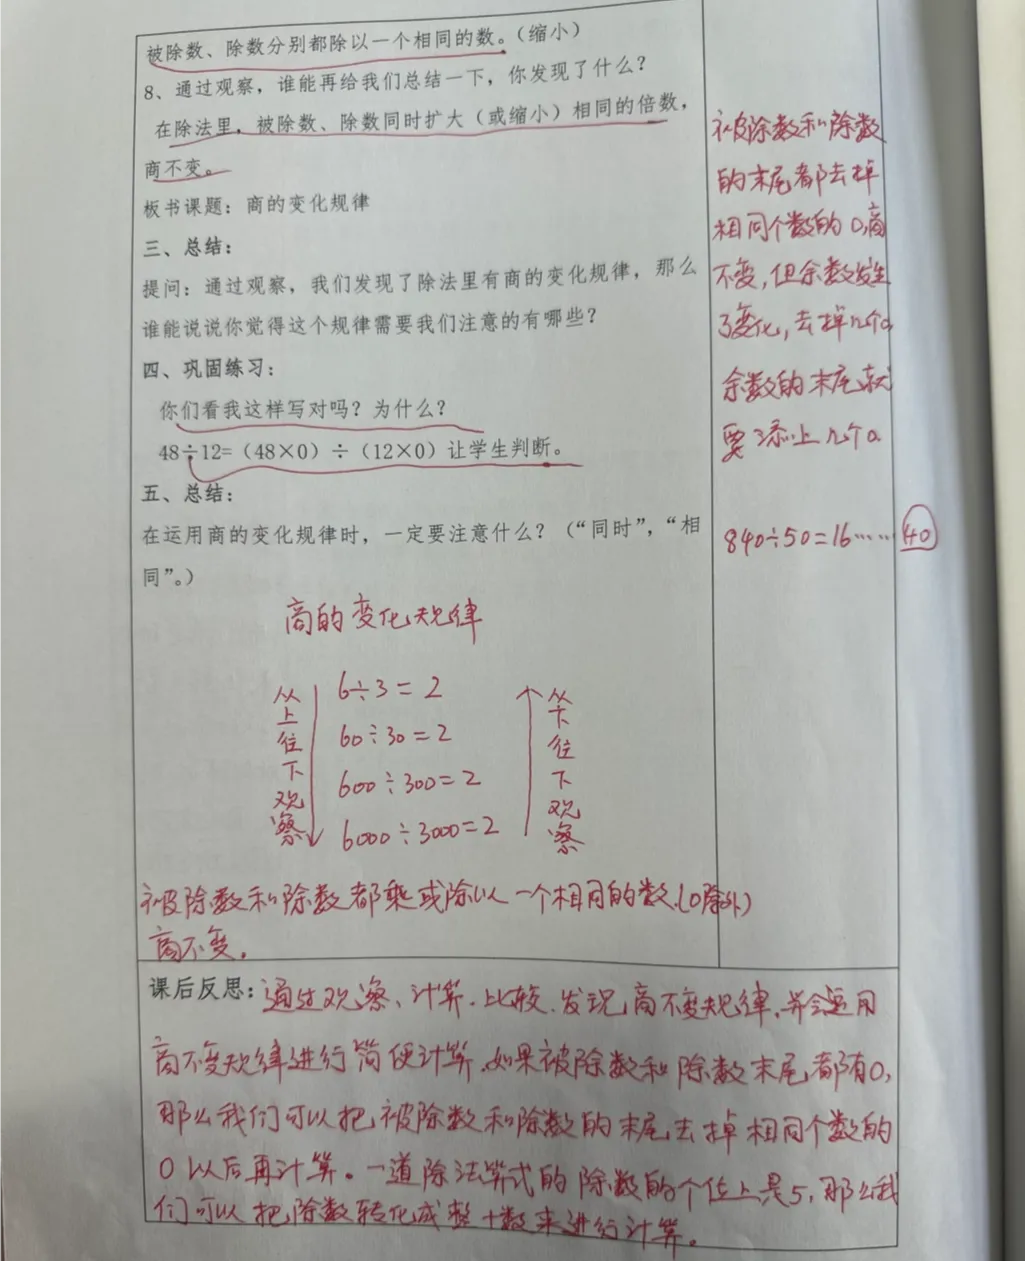 被除数、除数分别都除以一个相同的数。（缩小）
8、通过观察，谁能再给我们总结一下，你发现了什么？
在除法里，被除数、除数同时扩大（或缩小）相同的倍数，
商不变。
板书课题：商的变化规律
三、总结：
提问：通过观察，我们发现了除法里有商的变化规律，那么
谁能说说你觉得这个规律需要我们注意的有哪些？
四、巩固练习：
你们看我这样写对吗？为什么？
48÷12=（48×0）÷（12×0）让学生判断。
五、总结：
在运用商的变化规律时，一定要注意什么？（“同时”，“相
同”。）
商的变化规律
从上往下观察
6÷3=2
60÷30=2
600÷300=2
6000÷3000=2
从下往下观察
被除数和除数都乘或除以一个相同的数.(0除外)
商不变.
被除数和除数
的末尾都去掉
相同个数的0,商
不变,但余数发生
了变化,去掉几个0
余数的末尾就
要添上几个0.
840÷50=16……40
课后反思：通过观察、计算.比较.发现商不变规律.并会运用
商不变规律进行简便计算.如果被除数和除数末尾都有0,
那么我们可以把被除数和除数的末尾去掉相同个数的
0以后再计算。一道除法算式的除数的个位上是5,那么我
们可以把除数转化成整十数来进行计算。